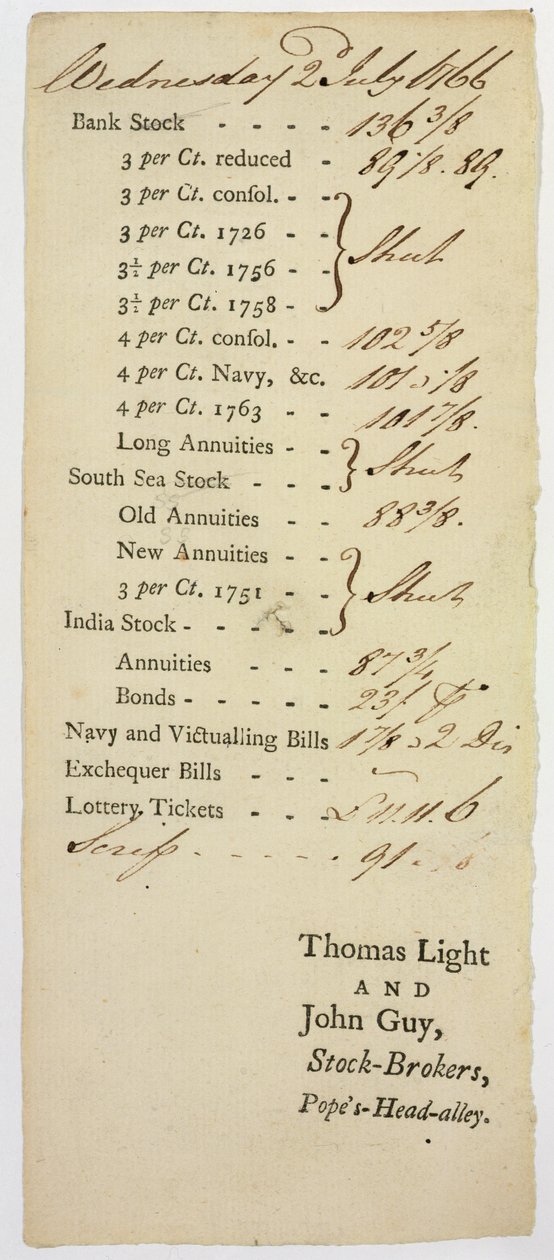 Wednesday 2d July 1766
Bank Stock - - - - 136 3/8
3 per Ct. reduced - 89 1/8. 89.
3 per Ct. conſol. - -
3 per Ct. 1726 - -
3½ per Ct. 1756 - - } Shut
3½ per Ct. 1758 - -
4 per Ct. conſol. - - 102 5/8
4 per Ct. Navy, &c. 101 1/8
4 per Ct. 1763 - - 101 7/8.
Long Annuities - - } Shut
South Sea Stock - - -
Old Annuities - - 88 3/8.
New Annuities - -
3 per Ct. 1751 - - } Shut
India Stock - - - - -
Annuities - - - 87 3/4
Bonds - - - - - 23/.
Navy and Victualling Bills 1 7/8 a 2 Dis
Exchequer Bills - - -
Lottery Tickets - - - £11.11.6
Scrip - - - - - 91
Thomas Light
AND
John Guy,
Stock-Brokers,
Pope's-Head-alley.